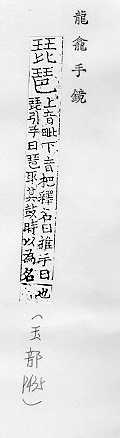 龍龕手鏡
琵琶
上音毗下音把釋名曰推手曰
琵引手曰琶取其鼓時以為名
也
(玉部 P435)